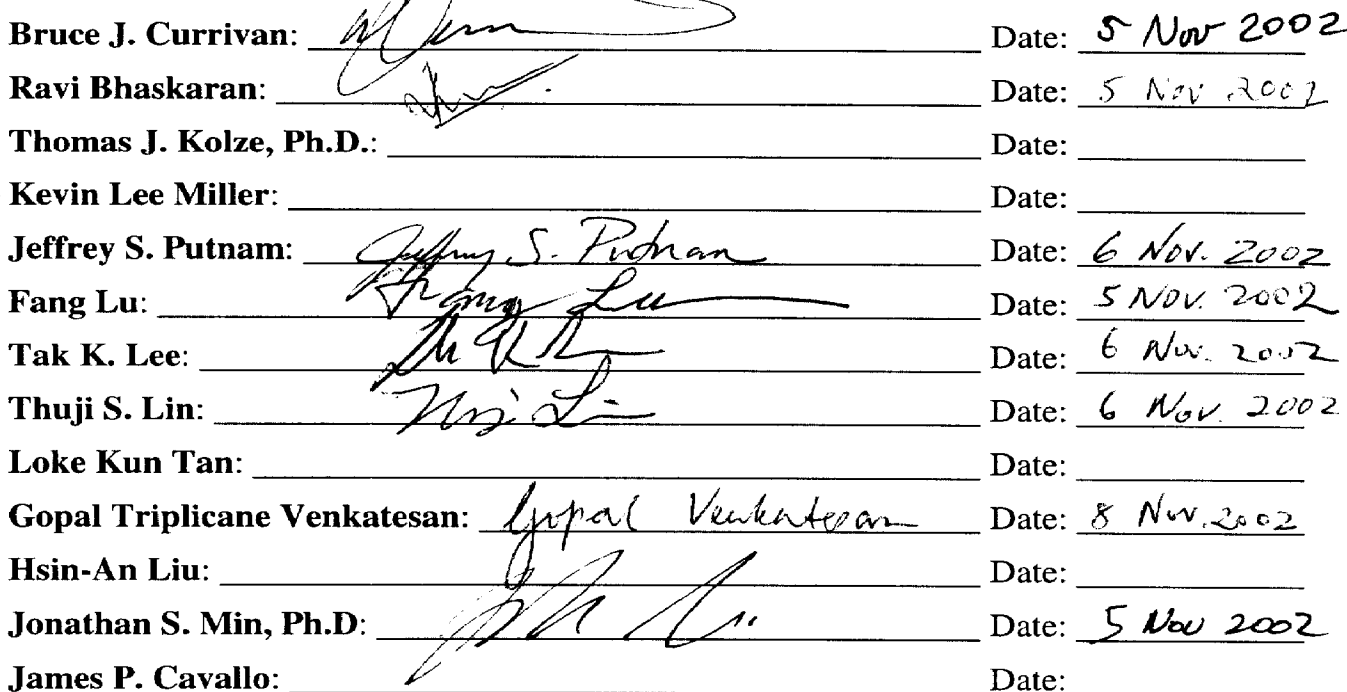 Bruce J. Currivan: Date: 5 Nov 2002
Ravi Bhaskaran: Date: 5 Nov 2002
Thomas J. Kolze, Ph.D.: Date:
Kevin Lee Miller: Date:
Jeffrey S. Putnam: Jeffrey S. Putnam Date: 6 Nov. 2002
Fang Lu: Fang Lu Date: 5 Nov. 2002
Tak K. Lee: Date: 6 Nov. 2002
Thuji S. Lin: Lin Date: 6 Nov. 2002
Loke Kun Tan: Date:
Gopal Triplicane Venkatesan: Gopal Venkatesan Date: 8 Nov. 2002
Hsin-An Liu: Date:
Jonathan S. Min, Ph.D: Date: 5 Nov 2002
James P. Cavallo: Date: